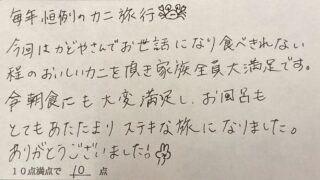 毎年恒例のカニ旅行
今回はかどやさんでお世話になり食べきれない
程のおいしいカニを頂き家族全員大満足です。
朝食にも大変満足し、お風呂も
とてもあたたまりステキな旅になりました。
ありがとうございました!
10点満点で 10 点